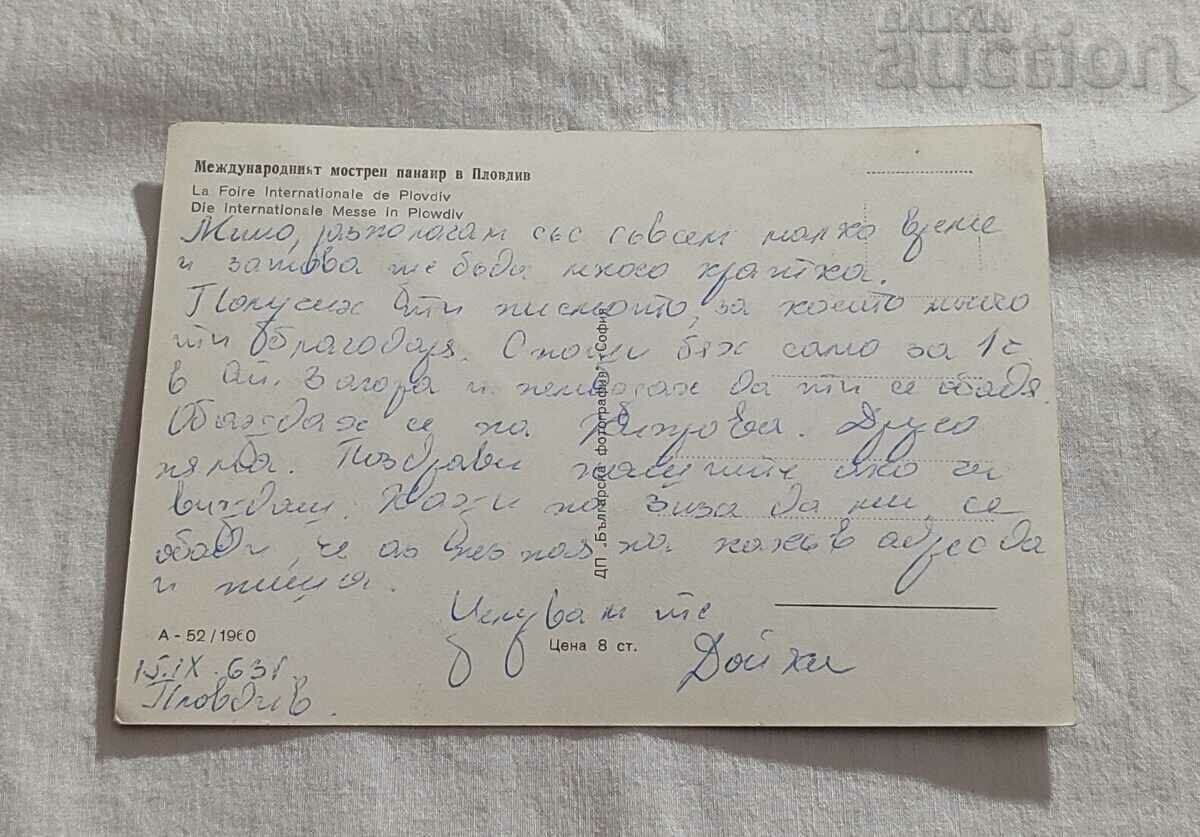 BALKAN
auction
Международният мострен панаир в Пловдив
La Foire Internationale de Plovdiv
Die Internationale Messe in Plowdiv
Мимо, разполагам със съвсем малко време
и затова ще бъда много кратка.
Получих ти писмото, за което много
ти благодаря. С мощи бях само за 1 ч
в Ст. Загора и неможах да ти се обадя.
Обаждах се на Друго
няма. Поздрави нашите ако ги
виждаш. Кажи на Зиза да ми се
обади, че аз не зная на какъв адрес да
и пиша.
Целувам те
Дойки
А - 52 / 1960
Цена 8 ст.
15.IX.63г.
Пловдив
ДП „Българска фотография" - София